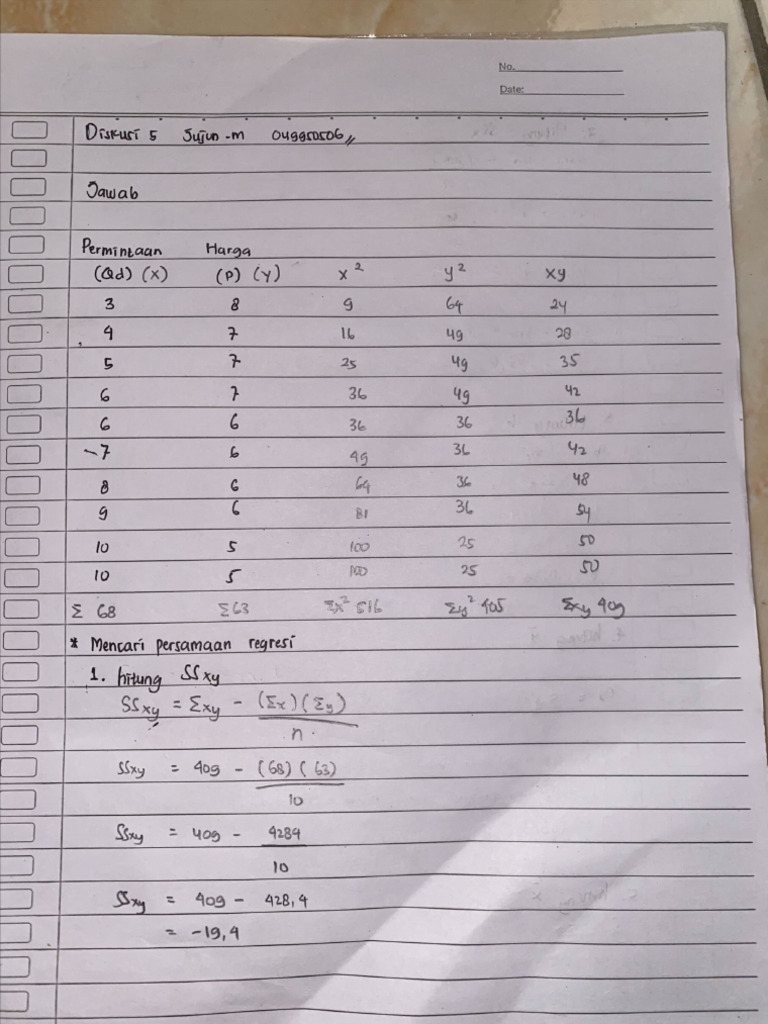 No.
Date:
Diskusi 5 Jujun -m 049950506,,
Jawab
Permintaan Harga
(Qd) (X) (P) (Y) x² y² xy
3 8 9 64 24
4 7 16 49 28
5 7 25 49 35
6 7 36 49 42
6 6 36 36 36
-7 6 49 36 42
8 6 64 36 48
9 6 81 36 54
10 5 100 25 50
10 5 100 25 50
Σ 68 Σ63 Σx² 516 Σy² 405 Σxy 409
* Mencari persamaan regresi
1. hitung SSxy
SSxy = Σxy - (Σx)(Σy)
n
SSxy = 409 - (68)(63)
10
SSxy = 409 - 4284
10
SSxy = 409 - 428,4
= -19,4